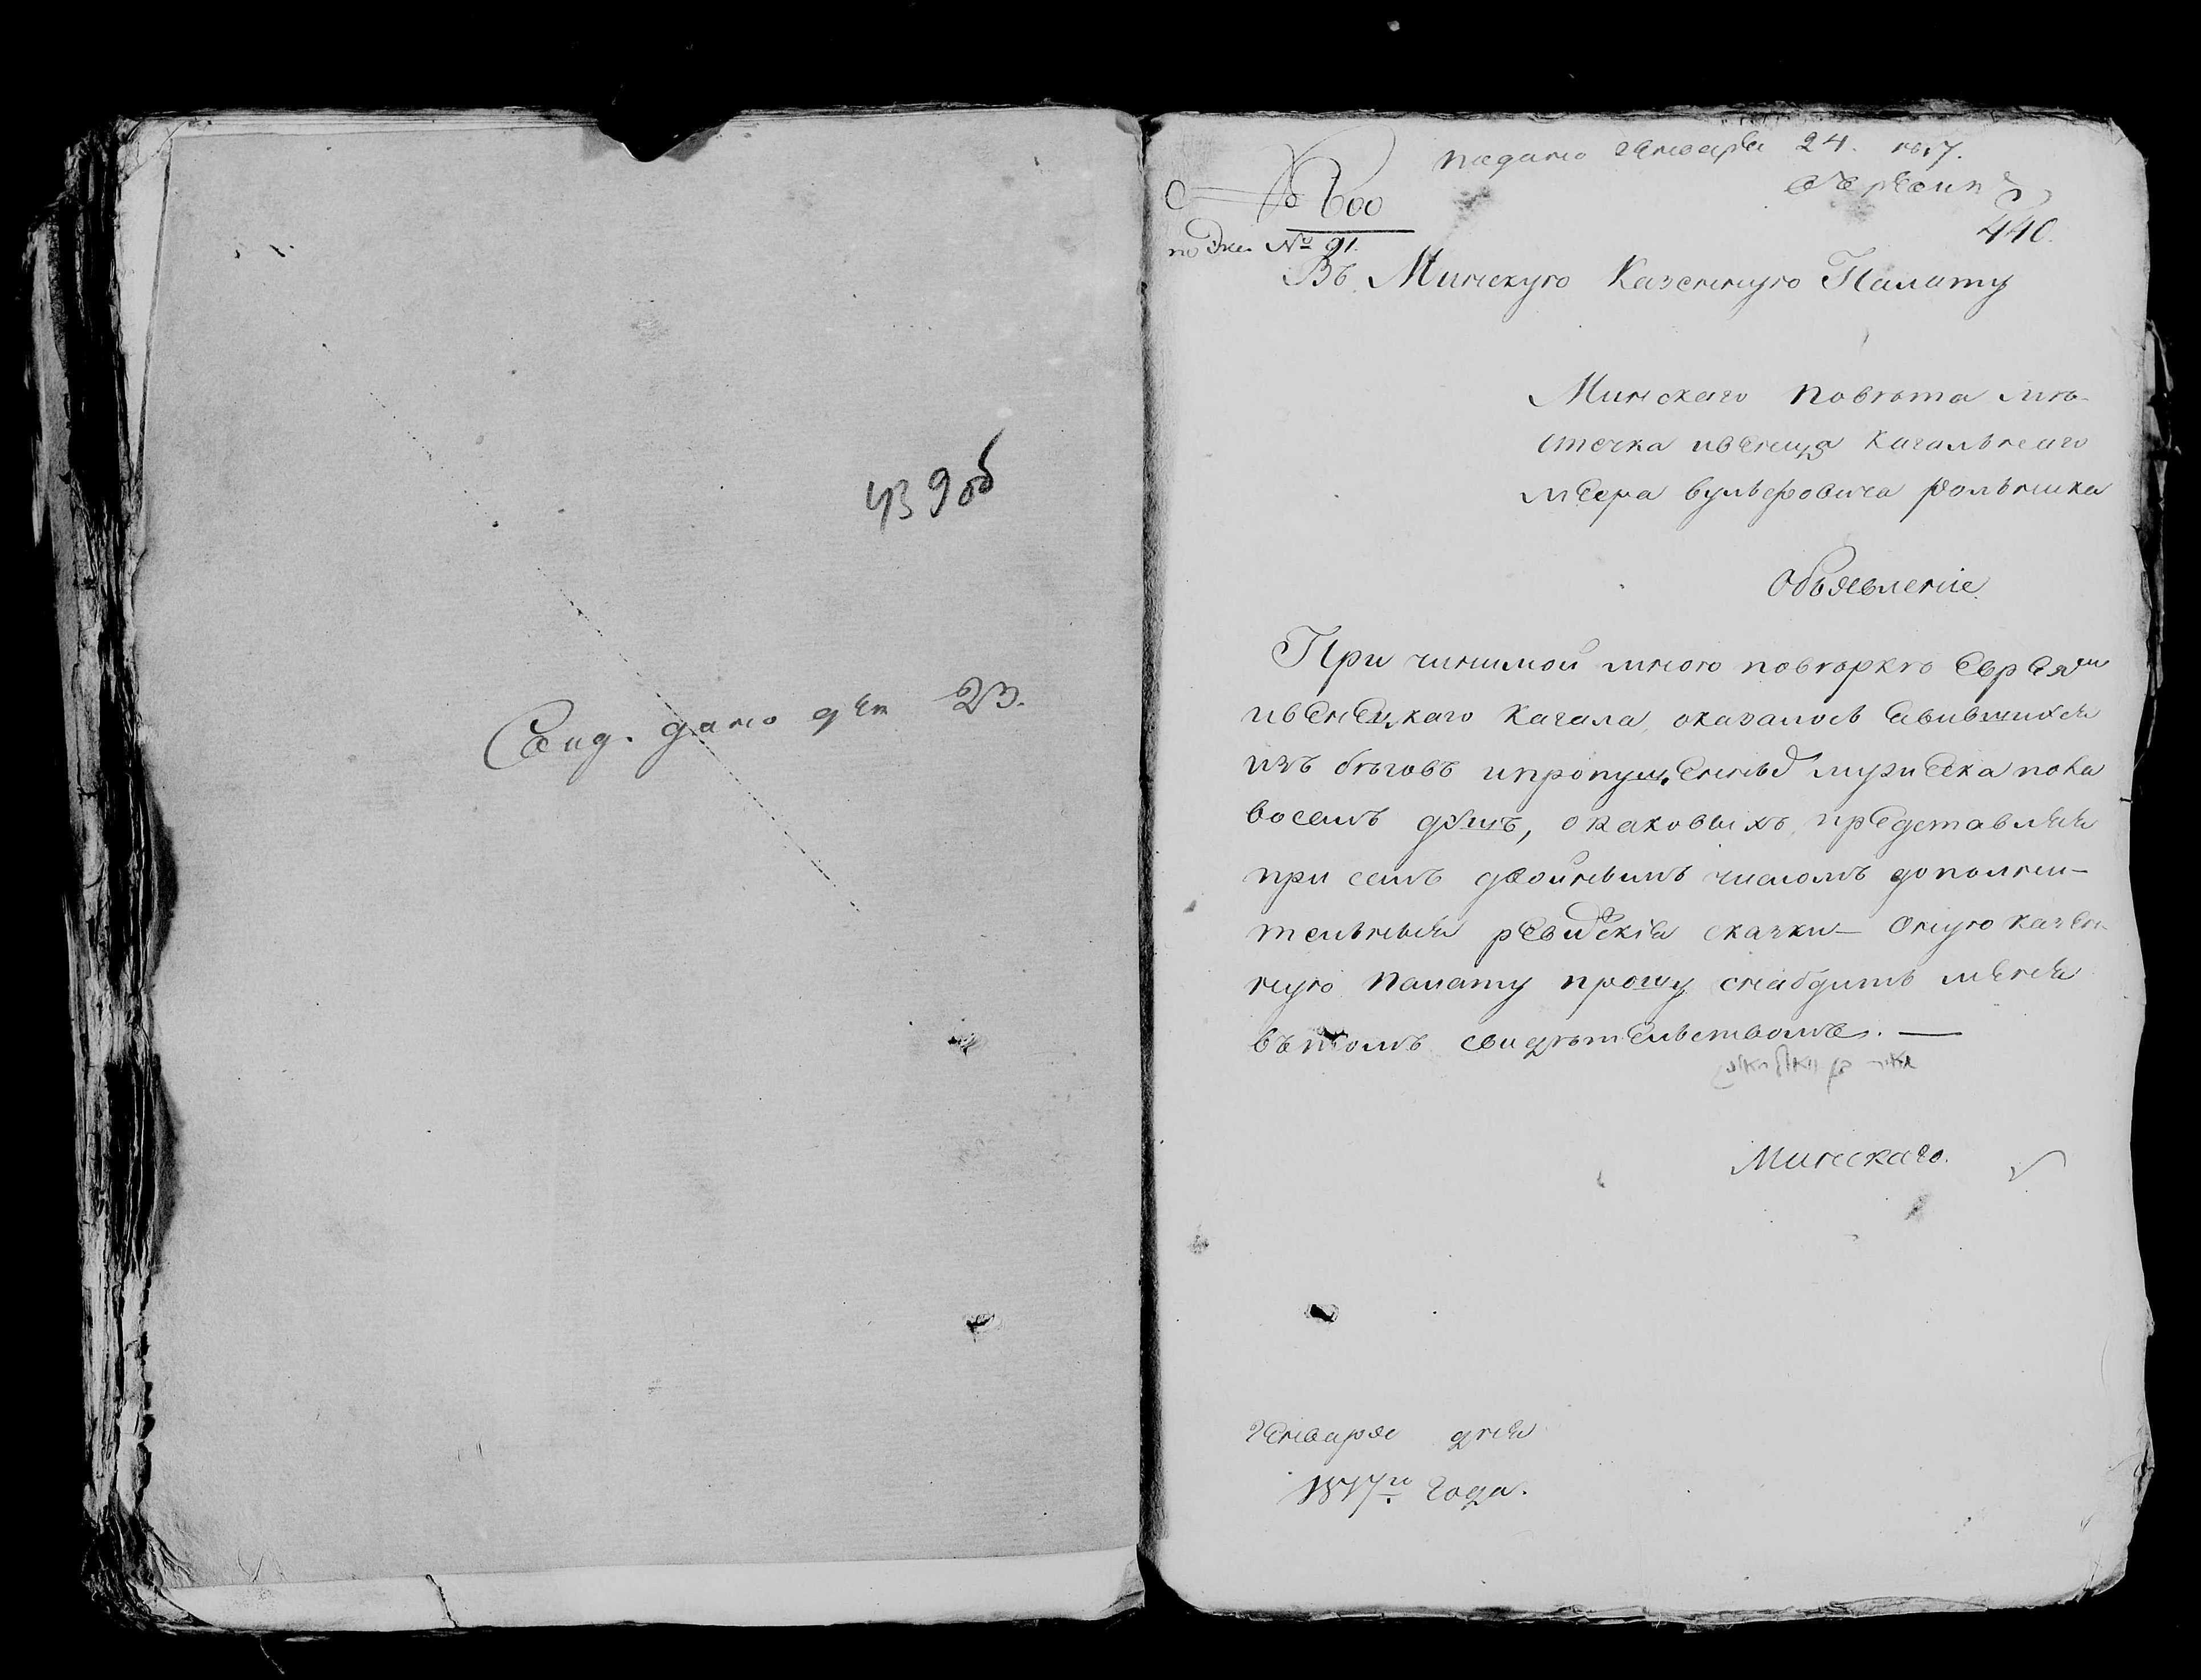 439об
Свид. дано ген 23.
подано генваря 24. 1817.
№ 600
440.
по Эк. № 91.
Въ Минскую Казенную Палату
Минскаго Повѣта мѣ-
стечка ивенца кагальнаго
меера вульфовича рольника
Объявленіе
При чинимой мною повѣркѣ Евреямъ
ивенецкаго кагала, оказалось явившихся
изъ бѣговъ ипропущенныхъ мужеска пола
восемъ душъ, окаковыхъ представляя
при семъ двойнымъ числомъ дополни-
тельныя ревизскія сказки — Оную казен-
ную Палату прошу снабдить меня
въ томъ свидѣтельствомъ. —
Минскаго.
Генваря дня
1817го Года.